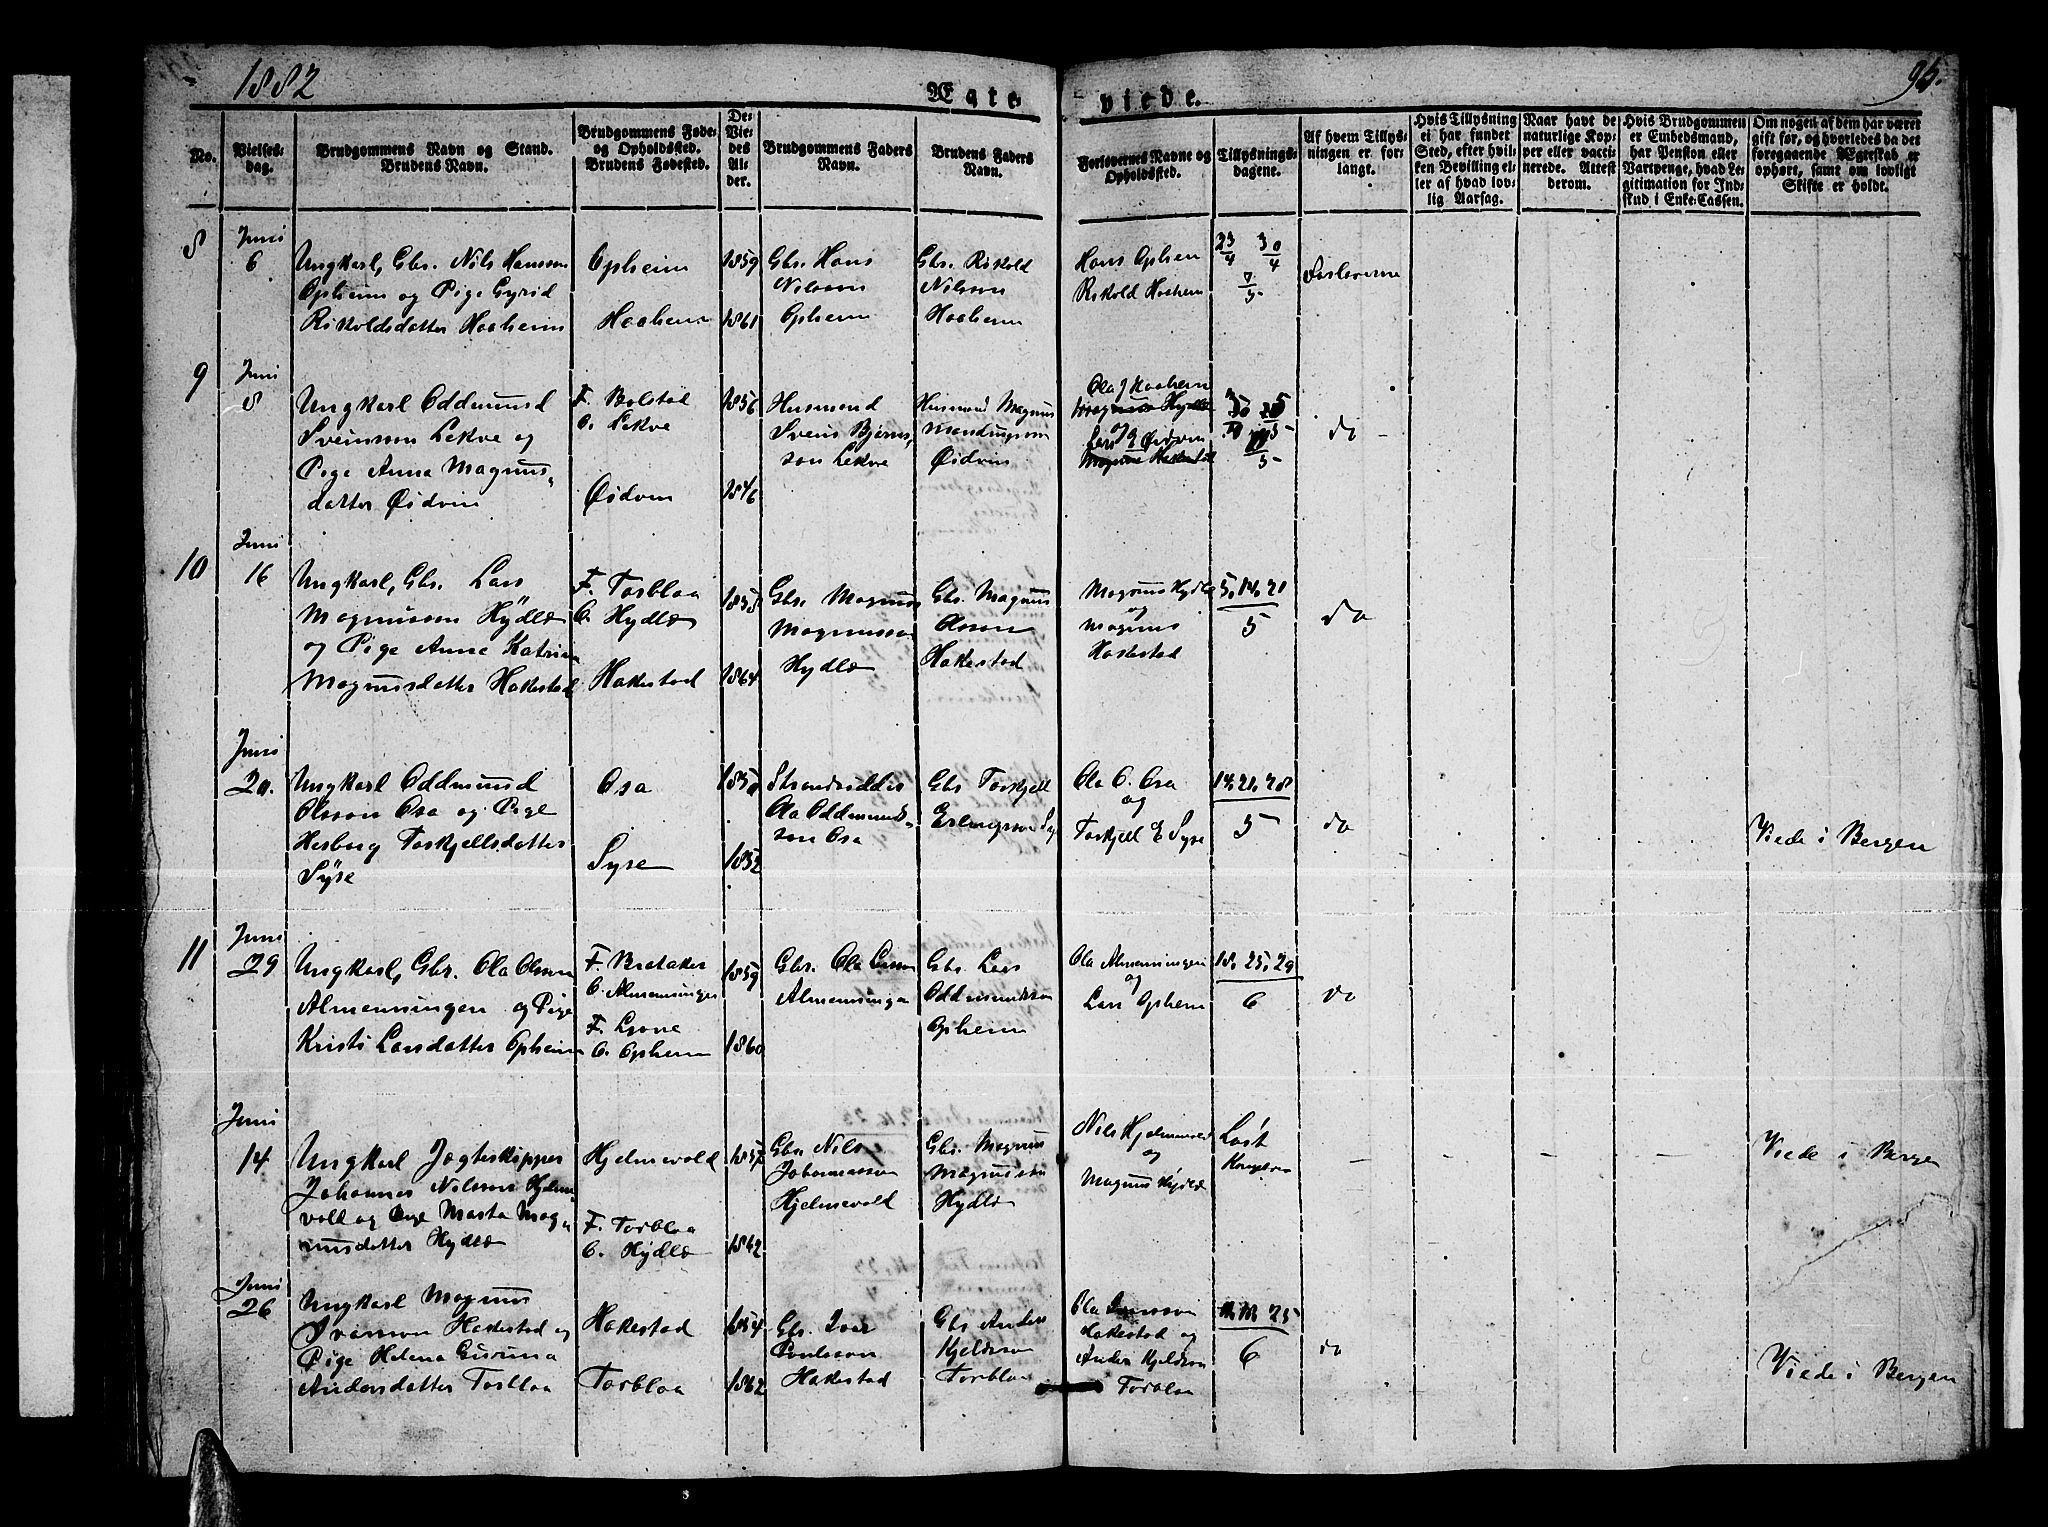 1882
Ægte
viede.
95.
No.
Vielses-
dag.
Brudgommens Navn og Stand.
Brudens Navn.
Brudgommens Føde-
og Opholdssted.
Brudens Fødested.
De
Vie-
des
Al-
der.
Brudgommens Faders
Navn.
Brudens Faders
Navn.
Forlovernes Navne og
Opholdssted.
Tillysnings-
dagene.
Af hvem Tillys-
ningen er for-
langt.
Hvis Tillysning
ei har fundet
Sted, efter hvil-
ken Bevilling el-
ler af hvad lov-
lig Aarsag.
Naar havt de
naturlige Kop-
per eller vacci-
nerede. Attest
derom.
Hvis Brudgommen
er Embedsmand,
har Pension eller
Vartpenge, hvad Le-
gitimation for Ind-
skud i Enke-Cassen.
Om nogen af dem har været
gift før, og hvorledes da det
foregaaende Ægteskab er
ophørt, samt om lovligt
Skifte er holdt.
8
Juni
6
Ungkarl, Gbr. Nils Hansson
Opheim og Pige Gyrid
Rikoldsdatter Haaheim
Opheim
Haaheim
1859
1861
Gbr. Hans
Nilsson
Opheim
Gbr. Rikold
Nilsson
Haaheim
Hans Opheim
Rikold Haaheim
23/4 30/4
7/5
Forloverne
9
Juni
8
Ungkarl Oddmund
Sveinsson Lekve og
Pige Anna Magnus-
datter Øidvin
F. Bolstad
O. Lekve
Øidvin
1856
1846
Husmand
Svein Bjørns-
son Lekve
Husmand Magnus
Øidvin
Ola J Haaheim
og
Lars Øidvin
do
10
Juni
16
Ungkarl, Gbr. Lars
Magnusson Hydle
og Pige Anna Katrina
Magnusdatter Hakestad
F. Torbloa
O. Hydle
Hakestad
1858
1864
Gbr. Magnus
Magnusson
Hydle
Gbr. Magnus
Olsson
Hakestad
Magnus Hydle
og
Magnus
Hakestad
5, 14, 21
5
do
Juni
20.
Ungkarl Oddmund
Olsson Osa og Pige
Herborg Torkjellsdatter
Syse
Osa
Syse
1850
1852
Strandsidder
Ola Oddmunds-
son Osa
Gbr Torkjell
Erlingsson Syse
Ola O. Osa
og
Torkjell E Syse
14, 21, 28
5
do
Viede i Bergen
11
Juni
29
Ungkarl, Gbr. Ola Olsson
Almenningen og Pige
Kristi Larsdatter Opheim
F. Bretaker
O. Almenningen
F. Lione
O. Opheim
1859
1860
Gbr. Ola Larsson
Almenningen
Gbr. Lars
Oddmundsson
Opheim
Ola Almenningen
og
Lars Opheim
18, 25, 29
6
do
Juni
14
Ungkarl Jagteskipper
Johannes Nilsson Hjelme-
vold og Pige Marta Mag-
nusdatter Hydle
Hjelmevold
F. Torbloa
O. Hydle
1857
1862
Gbr Nils
Johannesson
Hjelmevold
Gbr. Magnus
Magnusson
Hydle
Nils Hjelmevold
og
Magnus Hydle
Viede i Bergen
Juni
26
Ungkarl Magnus
Ivarson Hakestad og
Pige Helena Guruna
Andersdatter Torbloa
Hakestad
Torbloa
1854
1862
Gbr. Ivar
Poulsson
Hakestad
Gbr Anders
Kjeldsson
Torbloa
Ola Ivarsson
Hakestad og
Anders Kjeldsson
Torbloa
25
6
do
Viede i Bergen